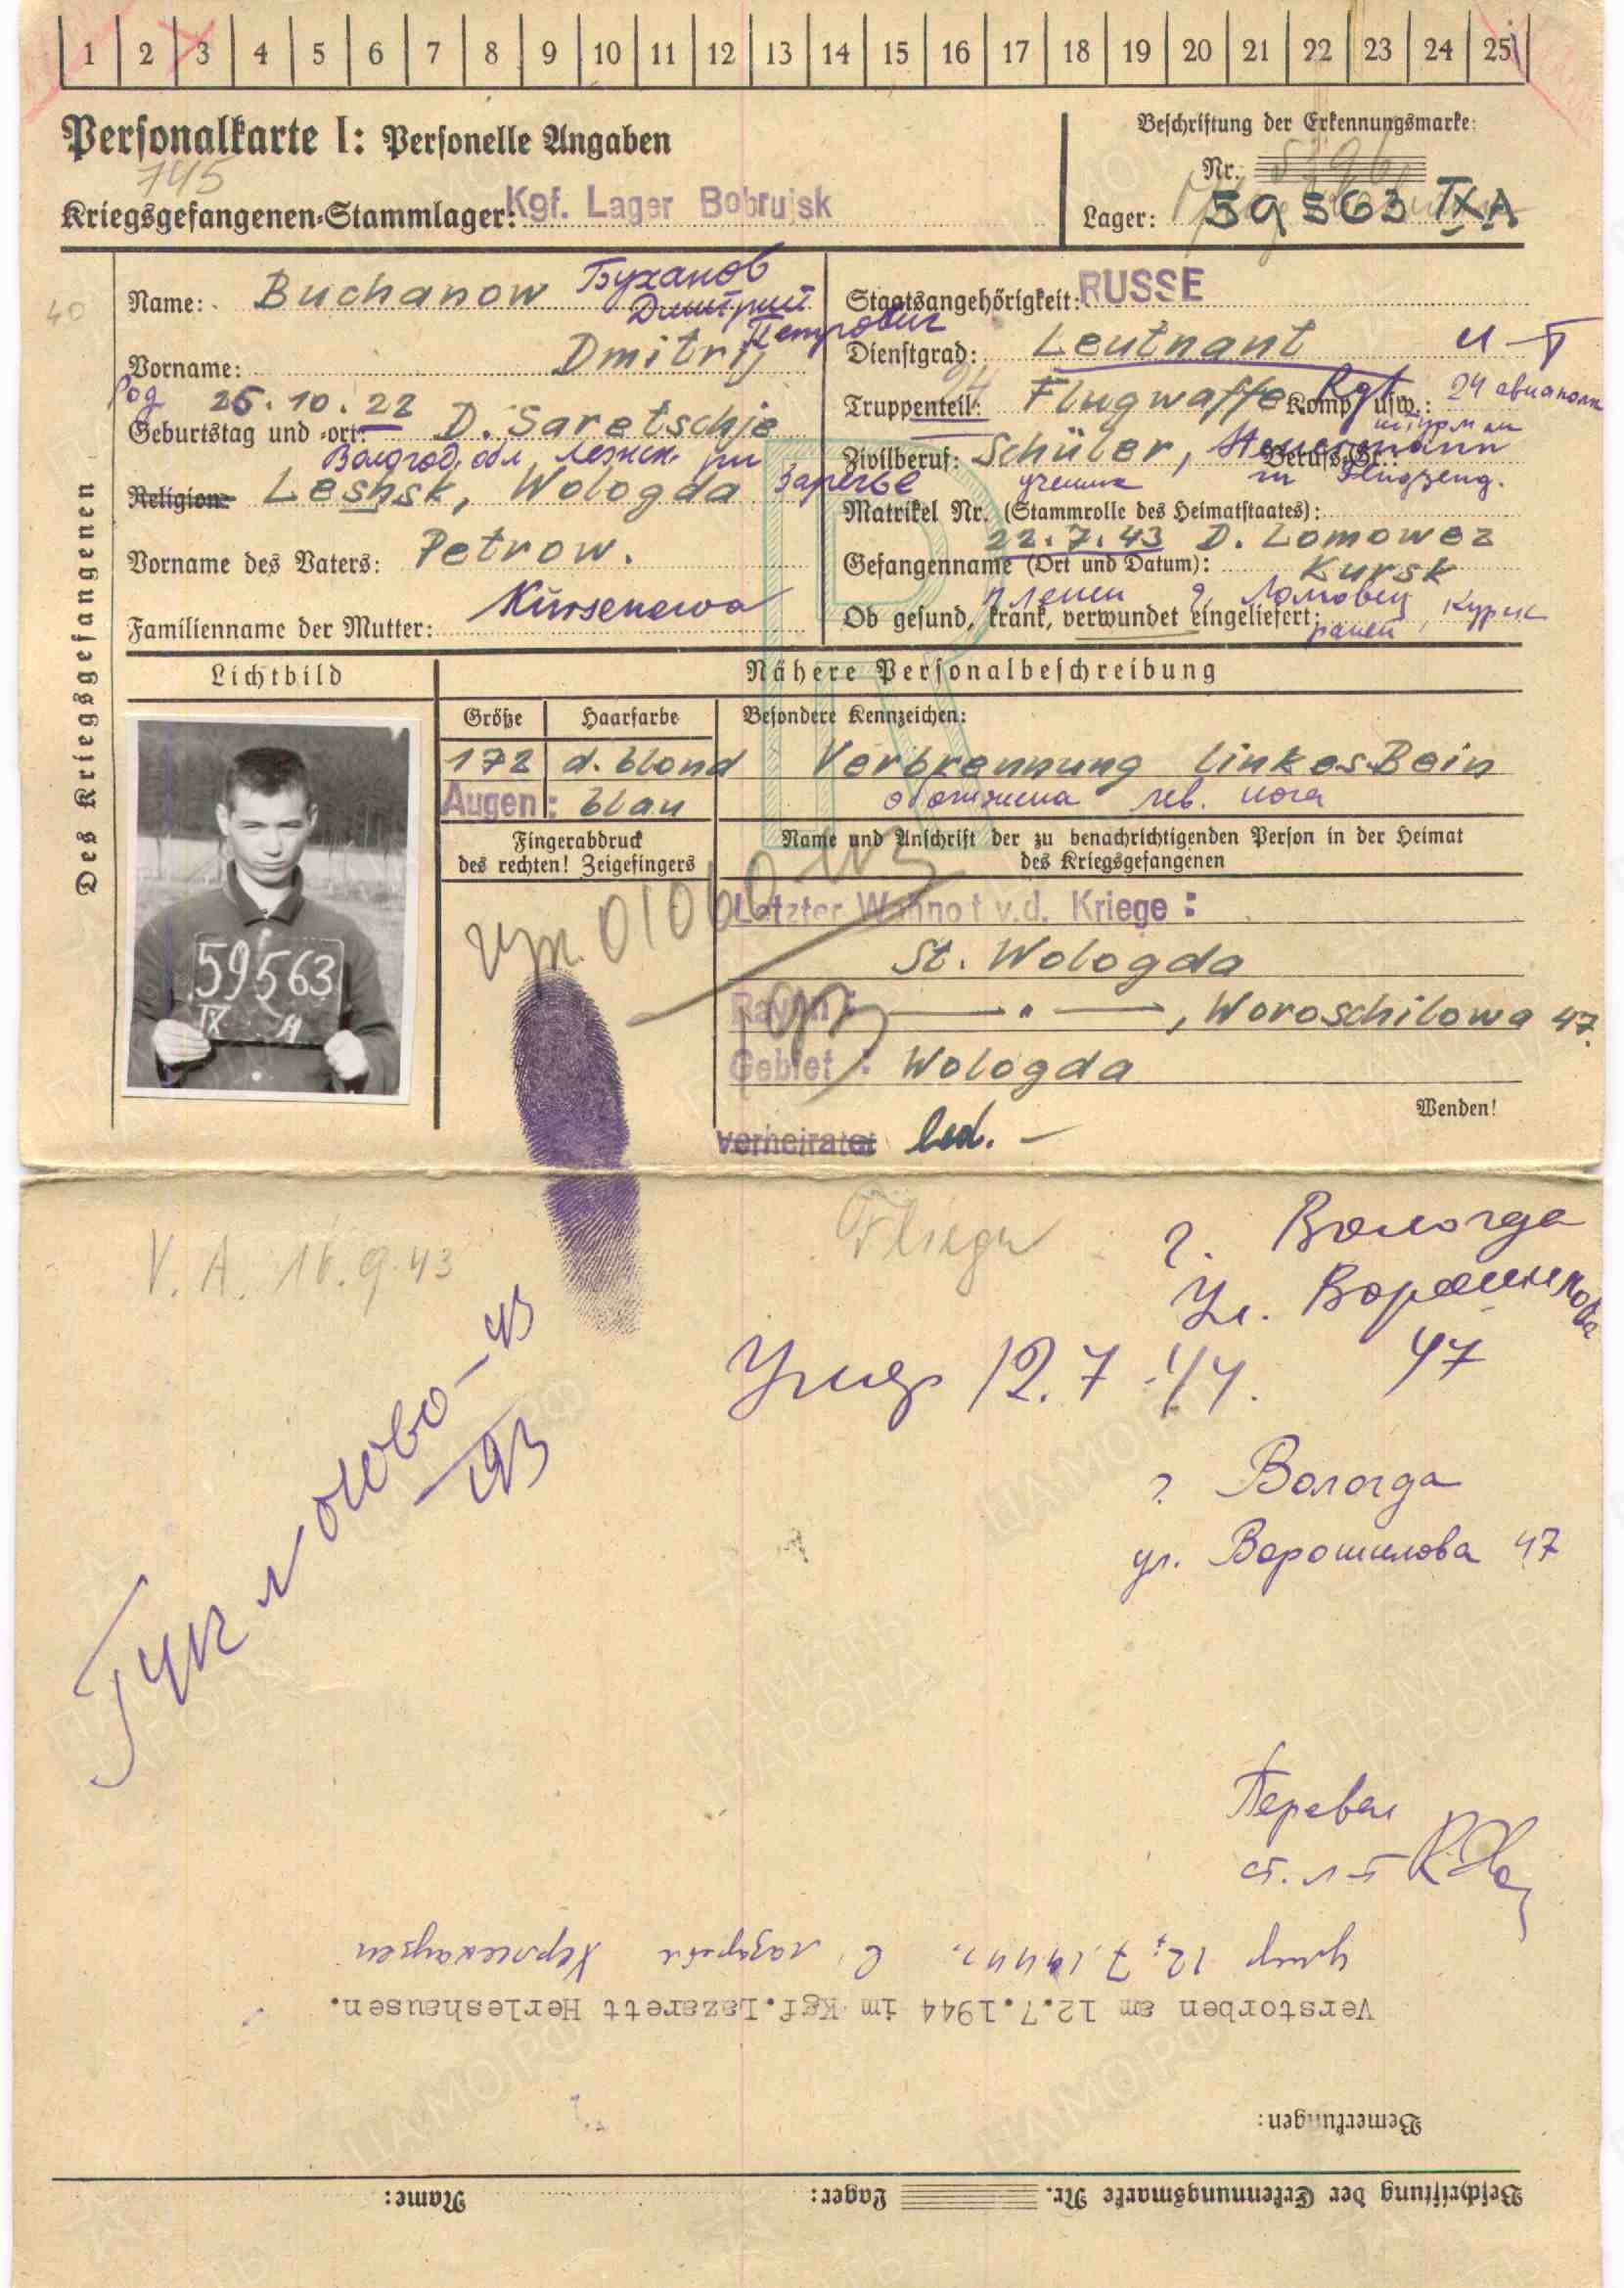 1 2 3 4 5 6 7 8 9 10 11 12 13 14 15 16 17 18 19 20 21 22 23 24 25
Personalkarte I: Personelle Angaben
745
Kriegsgefangenen-Stammlager: Kgf. Lager Bobrujsk
Beschriftung der Erkennungsmarke:
Nr.
Lager: 59563 IXA
40
Des Kriegsgefangenen
Name: Buchanow Буханов
Дмитрий
Петрович
Vorname: Dmitrij
Род 26.10.22 D. Saretschje
Geburtstag und -ort:
Волгод. обл Лежск. рн Заречье
Religion: Leshsk, Wologda
Vorname des Vaters: Petrow.
Familienname der Mutter: Kürsenewa
Staatsangehörigkeit: RUSSE
Dienstgrad: Leutnant л-т
24
Truppenteil: Flugwaffe Rgt Komp. usw.: 24 авиаполк
штурман
Zivilberuf: Schüler, Steuermann Berufs-Gr.:
ученик in Flugzeug.
Matrikel Nr. (Stammrolle des Heimatstaates):
22.7.43 D. Lomowez
Gefangennahme (Ort und Datum): Kursk
пленен д. Ломовец, Курск
Ob gesund, krank, verwundet eingeliefert:
ранен
Lichtbild
59563
IX A
Nähere Personalbeschreibung
Größe Haarfarbe Besondere Kennzeichen:
172 d. blond Verbrennung linkes Bein
Augen: blau обожжена лев. нога
Fingerabdruck
des rechten! Zeigefingers
Name und Anschrift der zu benachrichtigenden Person in der Heimat
des Kriegsgefangenen
01060-43
193
Letzter Wohnot v.d. Kriege:
St. Wologda
Rayon: — " —, Woroschilowa 47.
Gebiet: Wologda
Wenden!
verheiratet led. —
V. A. 16.9.43
Flieger
г. Вологда
Ул. Ворошилова
47
Умер 12.7.44.
193
г Вологда
ул. Ворошилова 47
Перевел
ст. л-т
Умер 12.7.1944г. в лазарете Херлесхаузен
Verstorben am 12.7.1944 im Kgf.Lazarett Herleshausen.
Bemerkungen:
Beschriftung der Erkennungsmarke Nr. Lager: Name: